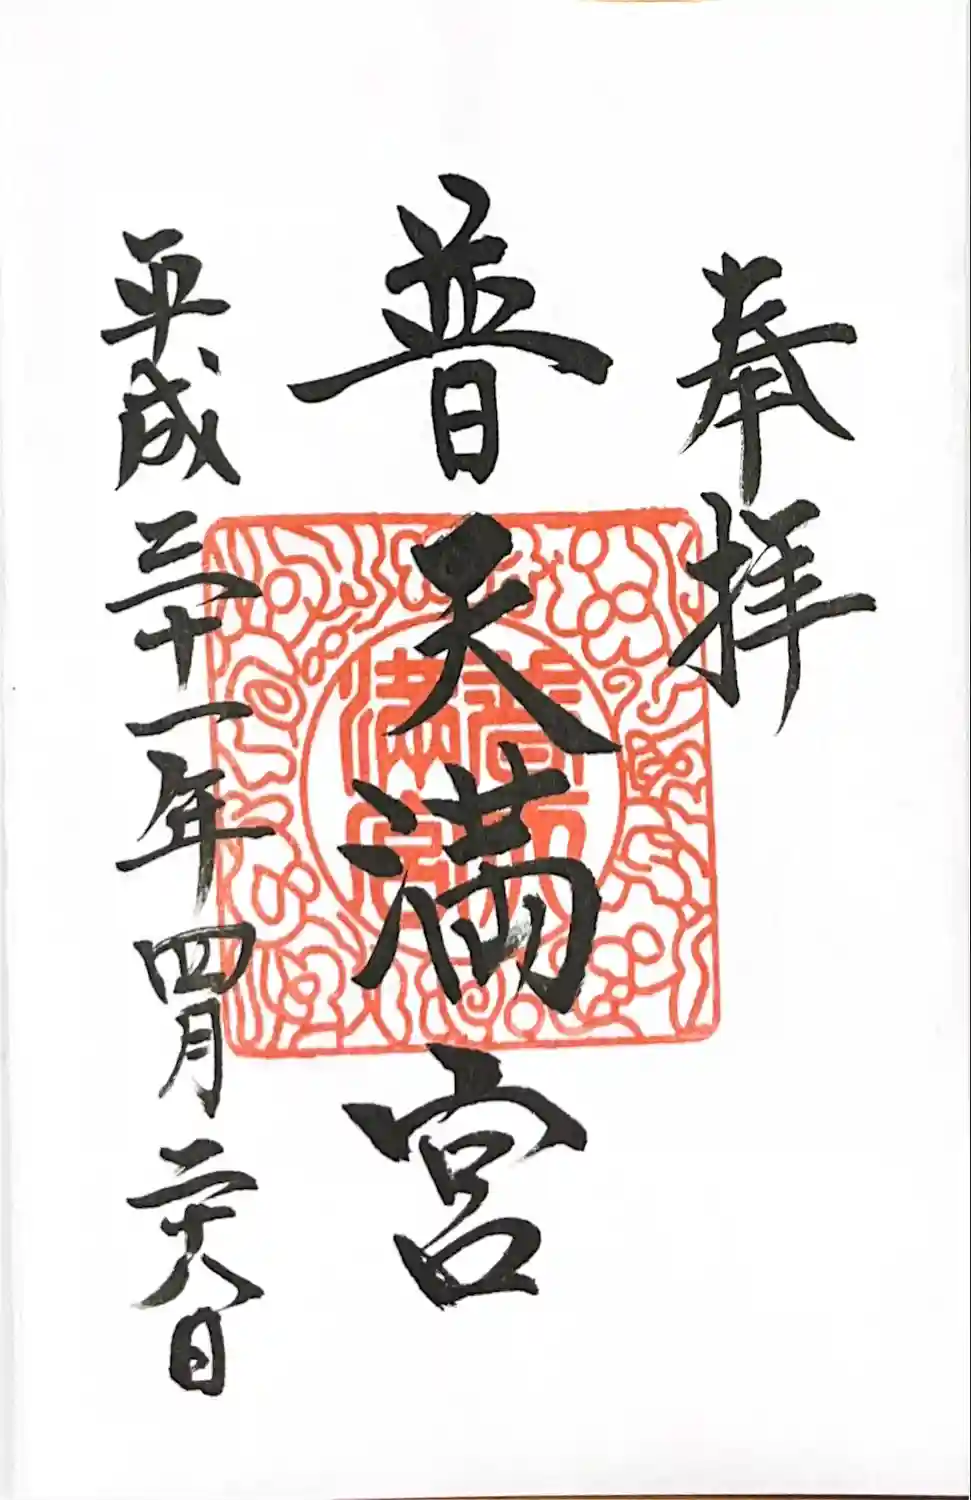 奉拝
普天満宮
普天
満宮
平成三十一年四月二十八日